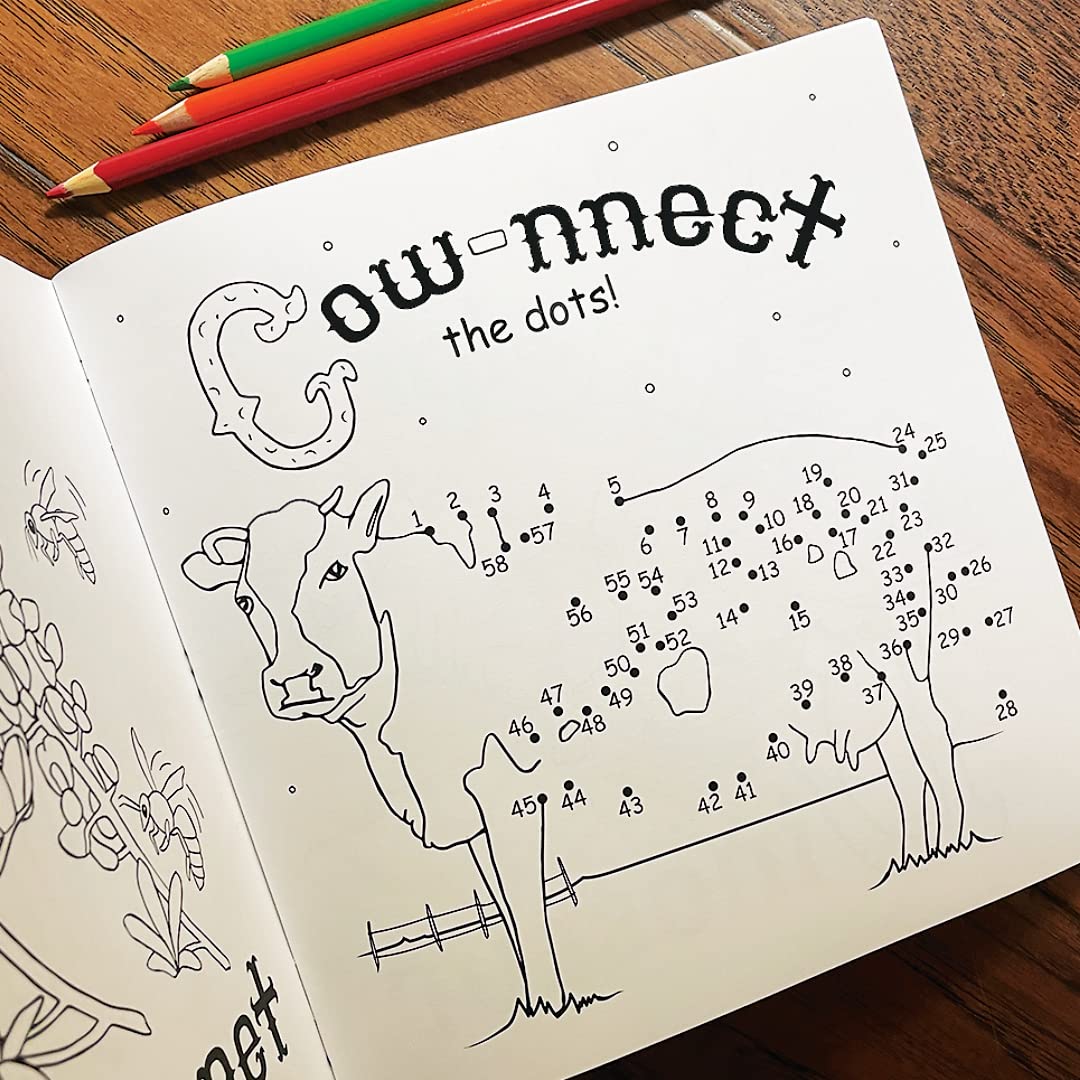 Cow-nnect
the dots!
24
25
5
19
31
1
2
3
4
8
9
18
20
21
23
57
6
7
10
11
16
17
22
32
58
12
13
33
26
55
54
34
30
56
53
14
15
35
27
51
52
29
36
50
38
37
47
49
39
28
46
48
40
45
44
43
42
41